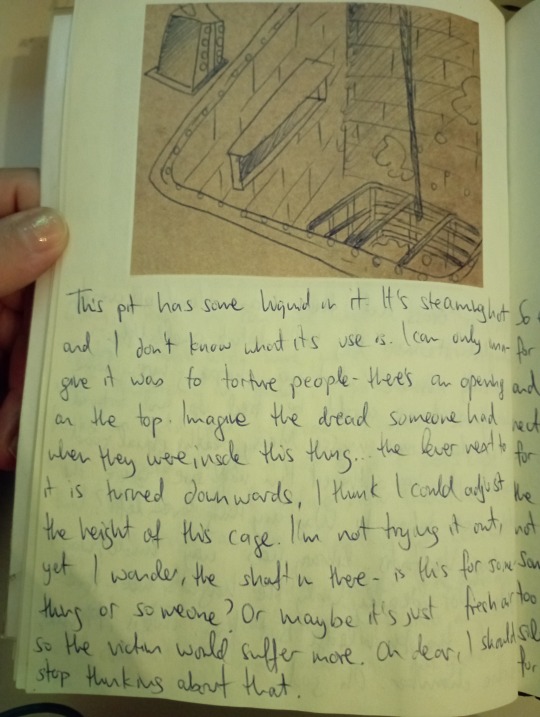 This pit has some liquid in it. It's steaming hot
and I don't know what its use is. I can only ima-
gine it was to torture people - there's an opening
on the top. Imagine the dread someone had
when they were inside this thing... the lever next to
it is turned downwards, I think I could adjust
the height of this cage. I'm not trying it out,
yet I wonder, the shaft in there - is this for some-
thing or someone? Or maybe it's just fresh air
so the victim would suffer more. Oh dear, I should
stop thinking about that.
So
for
and
next
for
the
not
son
too
for